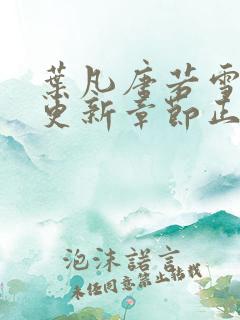 葉凡唐若雪
更新章節正
泡沫諾言
未經同意禁止轉載